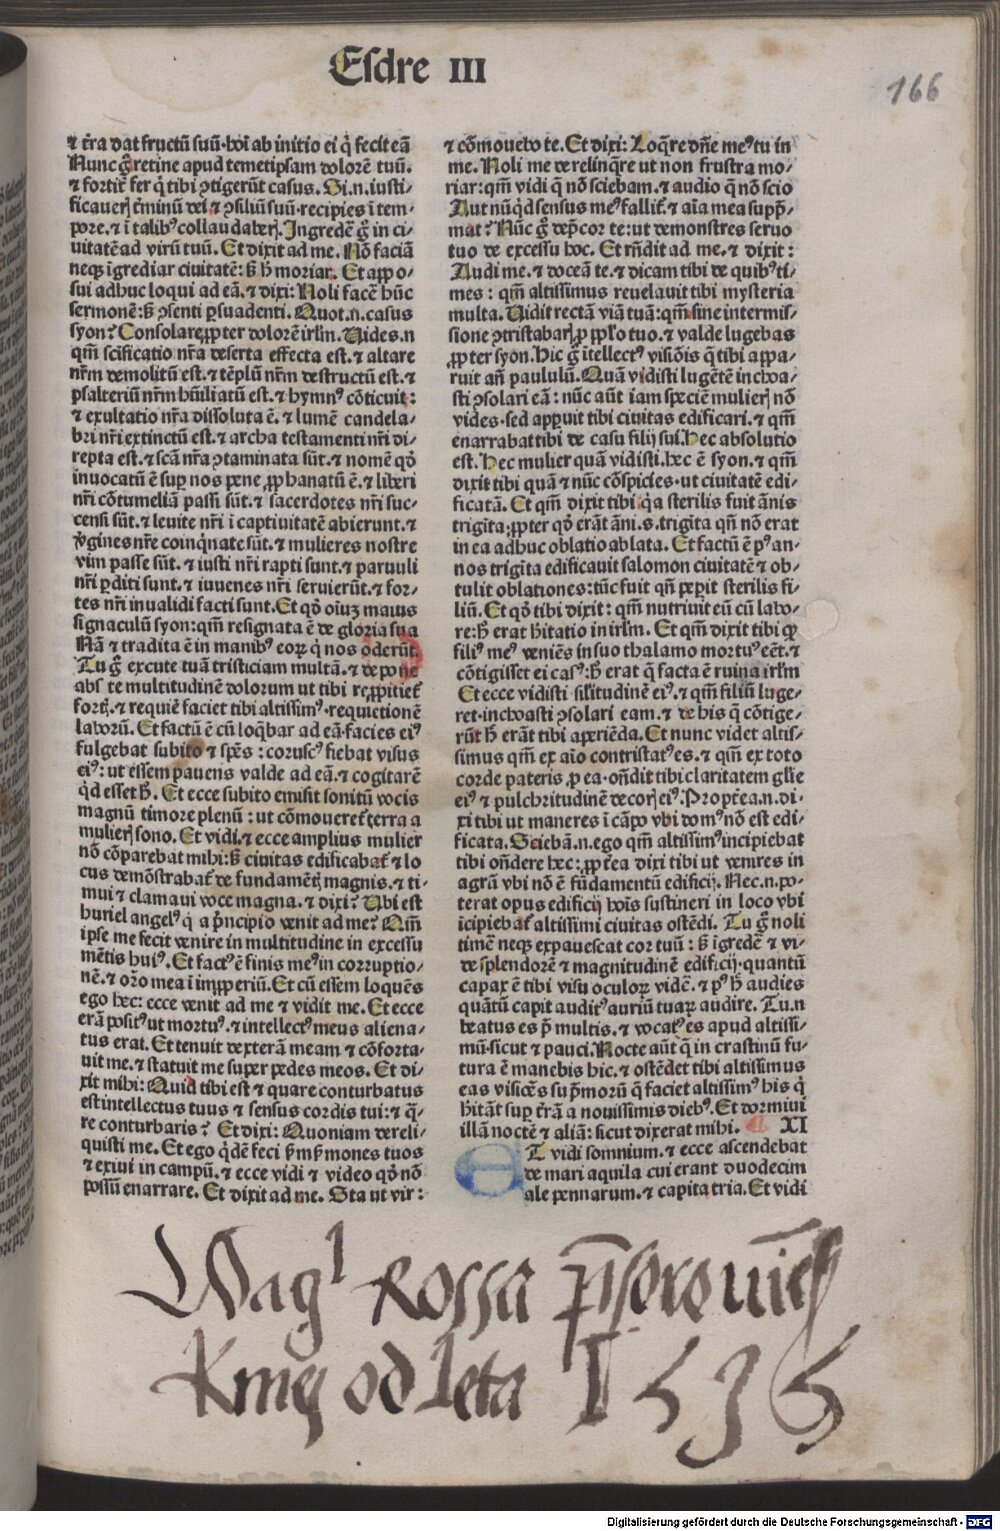 Esdre III
166
⁊ t̄ra dat fructū suū·hoī ab initio ei q̇ fecit eā
Nunc g̊ retine apud temetipsam dolorē tuū.
⁊ fortit̄ fer q̇ tibi ꝯtigerūt casus. Si.n.iusti-
ficauerꝭ t̄minū dei ⁊ ꝯsiliū suū·recipies ī tem-
pore.⁊ ī talibꝰ collaudaberꝭ. Ingredē g̊ in ci-
uitatē ad virū tuū. Et dixit ad me. Nō faciā
neqꝫ īgrediar ciuitatē: sꝫ h̄ moriar. Et appo-
sui adhuc loqui ad eā.⁊ dixi: Noli facē hūc
sermonē: sꝫ ꝯsenti ꝑsuadenti. Quot.n.casus
syon? Consolare ꝓpter dolorē irlm̄. Uides.n
qm̄ sc̄ificatio nr̄a deserta effecta est.⁊ altare
nr̄m demolitū est.⁊ tēplū nr̄m destructū est.⁊
psalteriū nr̄m hūiliatū est.⁊ hymnꝰ cōticuit:
⁊ exultatio nr̄a dissoluta ē.⁊ lumē candela-
bri nr̄i extinctū est.⁊ archa testamenti nr̄i di-
repta est.⁊ scā nr̄a ꝯtaminata sūt.⁊ nomē qd̊
inuocatū ē suꝑ nos pene ꝓphanatū ē.⁊ liberi
nr̄i cōtumeliā passi sūt.⁊ sacerdotes nr̄i suc-
censi sūt.⁊ leuite nr̄i ī captiuitatē abierunt.⁊
v̇gines nr̄e coinq̇nate sūt.⁊ mulieres nostre
vim passe sūt.⁊ iusti nr̄i rapti sunt.⁊ paruuli
nr̄i ꝑditi sunt.⁊ iuuenes nr̄i seruierūt.⁊ for-
tes nr̄i inualidi facti sunt. Et qd̊ oīuꝫ maius
signaculū syon: qm̄ resignata ē de gloria sua
Nā ⁊ tradita ē in manibꝰ eoꝝ q̇ nos oderūt.
Tu g̊ excute tuā tristiciam multā.⁊ depone
abs te multitudinē dolorum ut tibi reꝓpitiet̄
fortꝭ.⁊ requiē faciet tibi altissimꝰ·requietionē
laborū. Et factū ē cū loq̄bar ad eā·facies eiꝰ
fulgebat subito ⁊ spēs : coruscꝰ fiebat visus
eiꝰ: ut essem pauens valde ad eā.⁊ cogitarē
q̇d esset h̄. Et ecce subito emisit sonitū vocis
magnū timore plenū : ut cōmoueret̄ terra a
mulierꝭ sono. Et vidi.⁊ ecce amplius mulier
nō cōparebat mihi: sꝫ ciuitas edificabat̄ ⁊ lo
cus demōstrabat̄ de fundamētꝭ magnis.⁊ ti-
mui ⁊ clamaui voce magna.⁊ dixi: Ubi est
huriel angelꝰ q̇ a pͥncipio venit ad me? Qm̄
ipse me fecit venire in multitudine in excessu
mētis huiꝰ. Et factꝰ ē finis meꝰ in corruptio-
nē.⁊ or̄o mea ī inꝓperiū. Et cū essem loquēs
ego hec: ecce venit ad me ⁊ vidit me. Et ecce
erā positꝰ ut mortuꝰ.⁊ intellectꝰ meus aliena-
tus erat. Et tenuit dexterā meam ⁊ cōforta-
uit me.⁊ statuit me super pedes meos. Et di-
xit mihi: Quid tibi est ⁊ quare conturbatus
est intellectus tuus ⁊ sensus cordis tui: ⁊ q̄-
re conturbaris? Et dixi: Quoniam dereli-
quisti me. Et ego q̇dē feci s̄m s̄mones tuos
⁊ exiui in campū.⁊ ecce vidi ⁊ video qd̊ nō
possū enarrare. Et dixit ad me. Sta ut vir:
⁊ cōmouebo te. Et dixi: Loq̄re dn̄e meꝰ tu in
me. Noli me derelinq̄re ut non frustra mo-
riar: qm̄ vidi q̄ nō sciebam.⁊ audio q̄ nō scio
Aut nūq̇d sensus meꝰ fallit̄.⁊ aīa mea sup̄-
mat? Nūc g̊ dep̄cor te: ut demonstres seruo
tuo de excessu hoc. Et rn̄dit ad me.⁊ dixit:
Audi me.⁊ doceā te.⁊ dicam tibi de quibꝰ ti-
mes : qm̄ altissimus reuelauit tibi mysteria
multa. Uidit rectā viā tuā: qm̄ sine intermis-
sione ꝯtristabarꝭ ꝓ pplo tuo.⁊ valde lugebas
ꝓpter syon. Hic g̊ ītellectꝰ visiōis q̄ tibi appa-
ruit an̄ paululū. Quā vidisti lugētē inchoa-
sti ꝯsolari eā: nūc aūt iam speciē mulierꝭ nō
vides·sed apparuit tibi ciuitas edificari.⁊ qm̄
enarrabat tibi de casu filij sui. Hec absolutio
est. Hec mulier quā vidisti.hec ē syon.⁊ qm̄
dixit tibi quā ⁊ nūc cōspicies·ut ciuitatē edi-
ficatā. Et qm̄ dixit tibi q̇a sterilis fuit ānis
trigīta; ꝓpter qd̊ erāt āni.s.trigīta qn̄ nō erat
in ea adhuc oblatio ablata. Et factū ē pꝰ an-
nos trigīta edificauit salomon ciuitatē ⁊ ob-
tulit oblationes: tūc fuit qn̄ peꝑit sterilis fi-
liū. Et qd̊ tibi dixit: qm̄ nutriuit eū cū labo-
re: h̄ erat h̄itatio in irlm̄. Et qm̄ dixit tibi ꝙ
filiꝰ meꝰ veniēs in suo thalamo mortuꝰ eēt.⁊
cōtigisset ei casꝰ: h̄ erat q̄ facta ē ruina irlm̄
Et ecce vidisti sil̄itudinē eiꝰ.⁊ qm̄ filiū luge-
ret·inchoasti ꝯsolari eam.⁊ de his q̄ cōtige-
rūt h̄ erāt tibi aperiēda. Et nunc videt altis-
simus qm̄ ex aīo contristatꝰ es.⁊ qm̄ ex toto
corde pateris ꝓ ea·on̄dit tibi claritatem glīe
eiꝰ ⁊ pulchritudinē decorꝭ eiꝰ. Propt̄ea.n.di-
xi tibi ut maneres ī cāpo vbi domꝰ nō est edi-
ficata. Sciebā.n.ego qm̄ altissimꝰ incipiebat
tibi on̄dere hec: ꝓpt̄ea dixi tibi ut venires in
agrū vbi nō ē fūdamentū edificij. Nec.n.po-
terat opus edificij hoīs sustineri in loco vbi
īcipiebat̄ altissimi ciuitas ostēdi. Tu g̊ noli
timē neqꝫ expauescat cor tuū : sꝫ īgredē ⁊ vi-
de splendorē ⁊ magnitudinē edificij·quantū
capax ē tibi visu oculoꝝ vidē.⁊ pꝰ h̄ audies
quātū capit auditꝰ auriū tuaꝝ audire. Tu.n
beatus es p̄ multis.⁊ vocatꝰ es apud altissi-
mū·sicut ⁊ pauci. Nocte aūt q̄ in crastinū fu-
tura ē manebis hic.⁊ ostēdet tibi altissimus
eas visiōes sup̄morū q̄ faciet altissimꝰ his q̇
h̄itāt suꝑ t̄rā a nouissimis diebꝰ. Et dormiui
illā noctē ⁊ aliā: sicut dixerat mihi. XI
ET vidi somnium.⁊ ecce ascendebat
de mari aquila cui erant duodecim
ale pennarum.⁊ capita tria. Et vidi
Rossa
od leta 1535
Digitalisierung gefördert durch die Deutsche Forschungsgemeinschaft - DFG